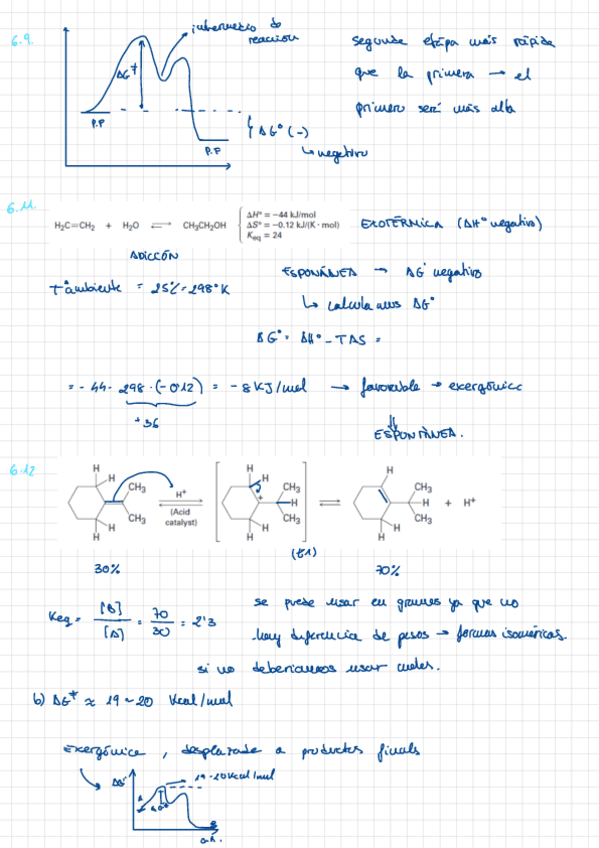 6.9.
intermedio de
reacción
ΔG‡
P.P
P.F
ΔG° (-)
↳ negativo
segunda etapa más rápida
que la primera → el
primero será más alta
6.11.
H₂C=CH₂ + H₂O ⇌ CH₃CH₂OH
ΔH° = −44 kJ/mol
ΔS° = −0.12 kJ/(K · mol)
Keq = 24
EXOTÉRMICA (ΔH° negativo)
ADICCÓN
Tªambiente = 25°C = 298°K
ESPONÁNEA → ΔG° negativo
↳ calculamos ΔG°
ΔG° = ΔH° - TΔS =
= - 44 - 298 · (-0'12) = - 8 KJ/mol → favorable → exergónica
+36
⇓
ESPONTÁNEA.
6.12
H H CH₃ CH₃ H H
H⁺
(Acid
catalyst)
H H CH₃ H CH₃ H H +
H CH₃ H CH₃ H H
+ H⁺
30%
(t1)
70%
Keq = [B]/[A] = 70/30 = 2'3
se puede usar en gramos ya que no
hay diferencia de pesos → formas isoméricas.
si no deberíamos usar moles.
b) ΔG‡ ≈ 19 ~ 20 Kcal/mol
Exergónica, desplazada a productos finals
ΔG
19-20Kcal/mol